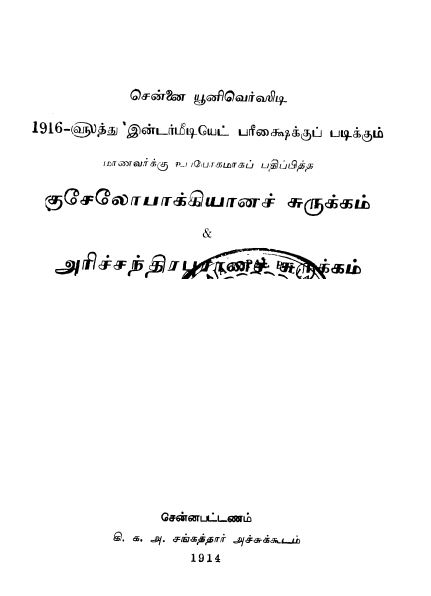 சென்னை யூனிவெர்ஸிடி
1916-௵த்து இன்டர்மீடியேட் பரீக்ஷைக்குப் படிக்கும்
மாணவர்க்கு உபயோகமாகப் பதிப்பித்த
குசேலோபாக்கியானச் சுருக்கம்
&
அரிச்சந்திரபுராணச் சுருக்கம்
சென்னபட்டணம்
கி. க. அ. சங்கத்தார் அச்சுக்கூடம்
1914